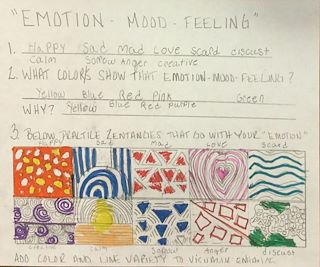 "EMOTION - MOOD - FEELING"
1. Happy Sad Mad Love scard discust
calm Sorrow Anger creative
2. WHAT COLOR/S SHOW THAT EMOTION-MOOD-FEELING?
Yellow Blue Red Pink Green
WHY? Yellow Blue Red purple
3. BELOW, PRACTICE ZENTANGLES THAT GO WITH YOUR "EMOTION"
Happy Sad Mad Love Scard
calm Sorrow Anger discust
ADD COLOR AND LINE VARIETY TO VISUALLY ENHANCE